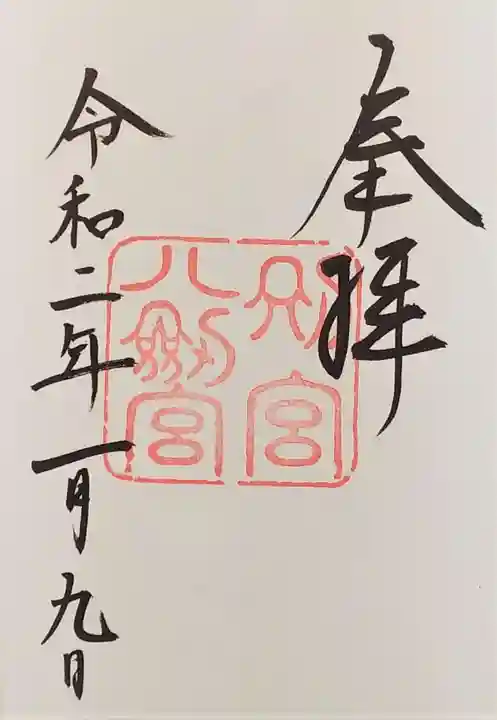 奉拝
別宮
八剱宮
令和二年一月九日